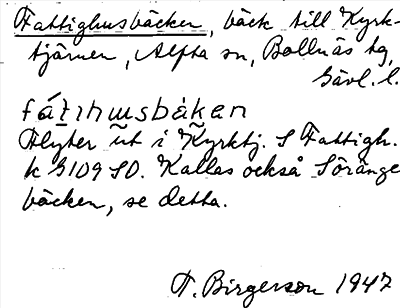 Fattighusbäcken, bäck till Kyrk-
tjärnen, Alfta sn, Bollnäs tg,
Gävl. l.
fátihusbäken
Flyter ut i Kyrktj. S Fattigh.
k G109 SO. Kallas också Söränge
bäcken, se detta.
T. Birgerson 1947